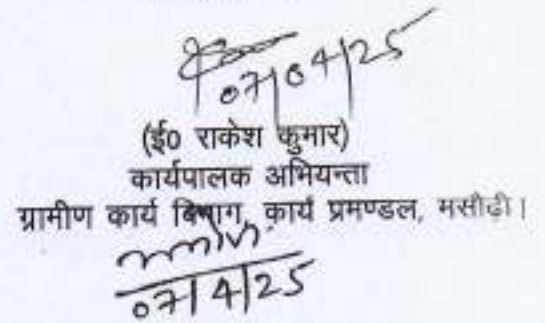 07/04/25
(ई0 राकेश कुमार)
कार्यपालक अभियन्ता
ग्रामीण कार्य विभाग, कार्य प्रमण्डल, मसौढ़ी।
07/4/25